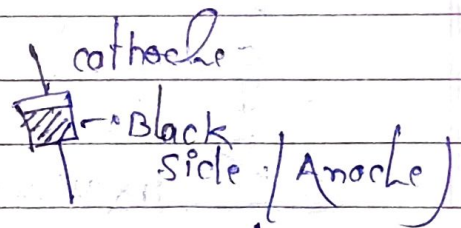 cathode
Black
side (Anode)